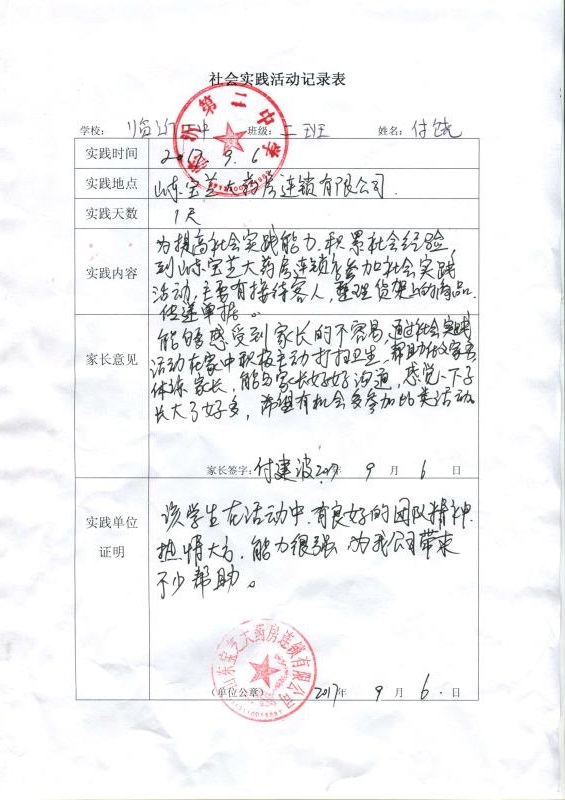 社会实践活动记录表
学校: 临沂二中 班级: 二班 姓名: 付饶
实践时间 2017.9.6
实践地点 山东宝芝大药房连锁有限公司.
实践天数 1天
实践内容
为提高社会实践能力.积累社会经验,
到山东宝芝大药房连锁店参加社会实践
活动,主要有接待客人,整理货架上的商品.
传递单据。
家长意见
能够感受到家长的不容易,通过社会实践
活动在家中积极主动打扫卫生,帮助父母
体谅家长,能与家长好好沟通,感觉一下子
长大了好多,希望有机会多参加此类活动.
家长签字: 付建波 2017年 9 月 6 日
实践单位
证明
该学生在活动中.有良好的团队精神.
热情大方.能力很强 为我公司带来
不少帮助。
(单位公章) 2017年 9 月 6. 日
山东宝芝大药房连锁有限公司